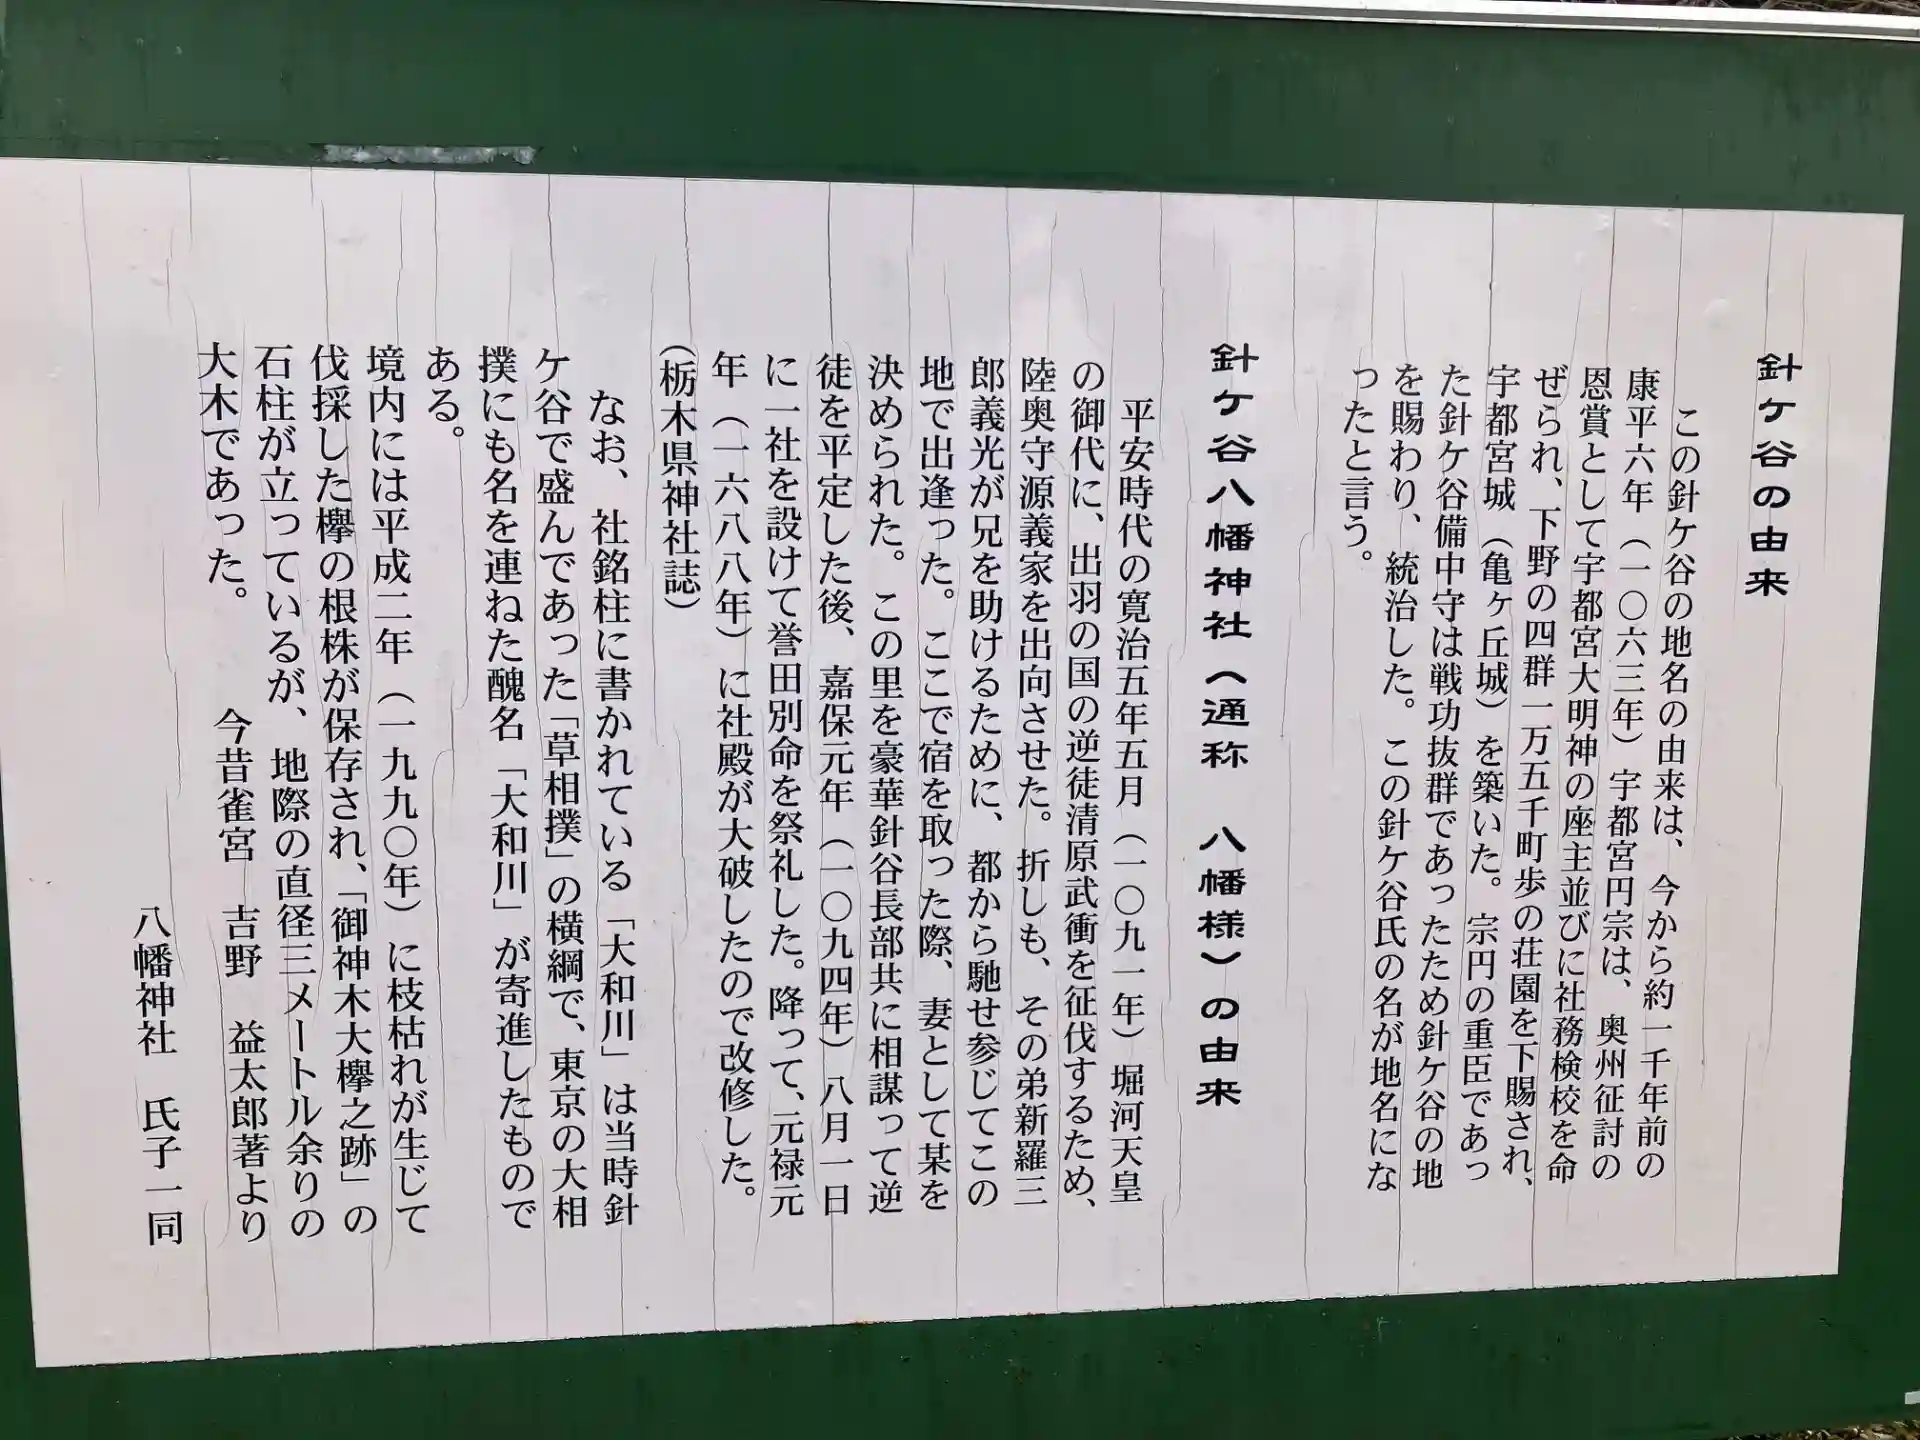 針ケ谷の由来
この針ケ谷の地名の由来は、今から約一千年前の
康平六年(一〇六三年)宇都宮円宗は、奥州征討の
恩賞として宇都宮大明神の座主並びに社務検校を命
ぜられ、下野の四群一万五千町歩の荘園を下賜され、
宇都宮城(亀ヶ丘城)を築いた。宗円の重臣であっ
た針ケ谷備中守は戦功抜群であったため針ケ谷の地
を賜わり、統治した。この針ケ谷氏の名が地名にな
ったと言う。
針ケ谷八幡神社(通称 八幡様)の由来
平安時代の寛治五年五月(一〇九一年)堀河天皇
の御代に、出羽の国の逆徒清原武衝を征伐するため、
陸奥守源義家を出向させた。折しも、その弟新羅三
郎義光が兄を助けるために、都から馳せ参じてこの
地で出逢った。ここで宿を取った際、妻として某を
決められた。この里を豪華針谷長部共に相謀って逆
徒を平定した後、嘉保元年(一〇九四年)八月一日
に一社を設けて誉田別命を祭礼した。降って、元禄元
年(一六八八年)に社殿が大破したので改修した。
(栃木県神社誌)
なお、社銘柱に書かれている「大和川」は当時針
ケ谷で盛んであった「草相撲」の横綱で、東京の大相
撲にも名を連ねた醜名「大和川」が寄進したもので
ある。
境内には平成二年(一九九〇年)に枝枯れが生じて
伐採した欅の根株が保存され、「御神木大欅之跡」の
石柱が立っているが、地際の直径三メートル余りの
大木であった。 今昔雀宮 吉野 益太郎著より
八幡神社 氏子一同